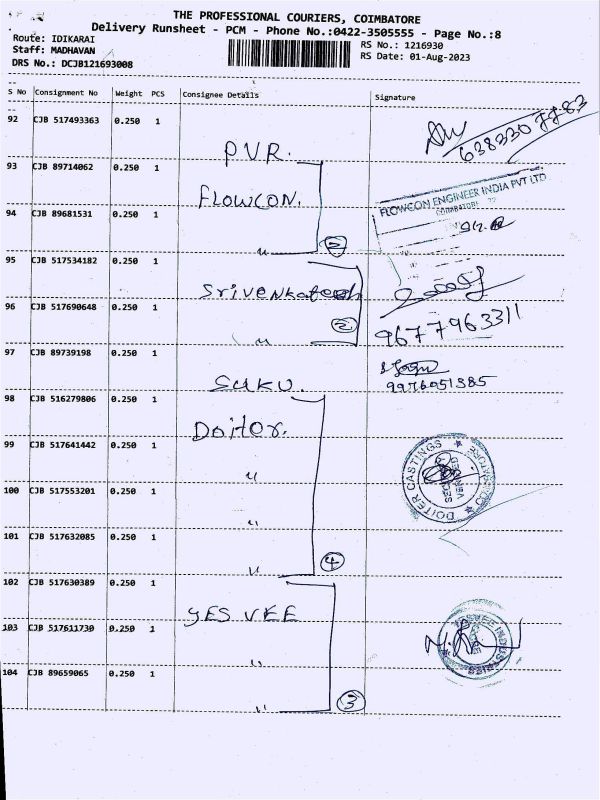 THE PROFESSIONAL COURIERS, COIMBATORE
Delivery Runsheet - PCM - Phone No.:0422-3505555 - Page No.:8
Route: IDIKARAI
Staff: MADHAVAN
DRS No.: DCJB121693008
RS No.: 1216930
RS Date: 01-Aug-2023
S No Consignment No Weight PCS Consignee Details Signature
92 CJB 517493363 0.250 1 PVR. 6383307783
93 CJB 89714062 0.250 1 FLOWCON. FLOWCON ENGINEER INDIA PVT LTD
94 CJB 89681531 0.250 1 " 2
95 CJB 517534182 0.250 1 Srivenkatesh
96 CJB 517690648 0.250 1 " 2 9677963311
97 CJB 89739198 0.250 1 SUKU. 9976951385
98 CJB 516279806 0.250 1 Doiter.
99 CJB 517641442 0.250 1 " DOITER CASTINGS COIMBATORE
100 CJB 517553201 0.250 1 "
101 CJB 517632085 0.250 1 " 4
102 CJB 517630389 0.250 1 YES VEE
103 CJB 517611730 0.250 1 " YESVEE INDUSTRIES
104 CJB 89659065 0.250 1 " 3